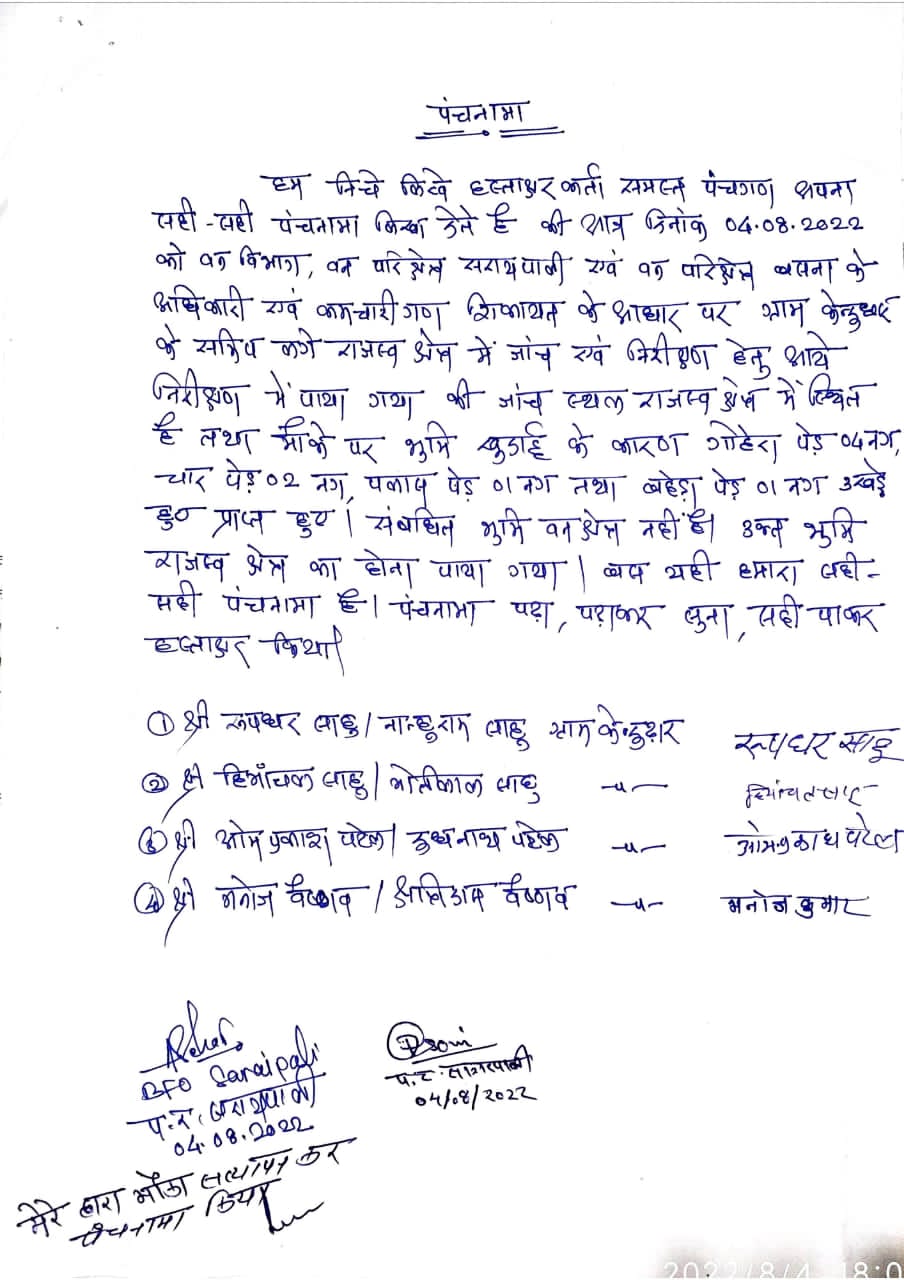 पंचनामा
हम निचे लिखे हस्ताक्षर कर्ता समस्त पंचगण अपना
सही-सही पंचनामा लिख देते है की आज दिनांक 04.08.2022
को वन विभाग, वन परिक्षेत्र सरायपाली एवं वन परिक्षेत्र बसना के
अधिकारी एवं कर्मचारीगण शिकायत के आधार पर ग्राम केन्दुढार
के समिप लगे राजस्व क्षेत्र में जांच एवं निरीक्षण हेतु आये
निरीक्षण में पाया गया की जांच स्थल राजस्व क्षेत्र में स्थित
है तथा मौके पर भुमि खुदाई के कारण गोहेरा पेड़ 04 नग,
चार पेड़ 02 नग, पलाश पेड़ 01 नग तथा बहेड़ा पेड़ 01 नग उखड़े
हुए प्राप्त हुए। संबधित भुमि वन क्षेत्र नहीं है। उक्त भुमि
राजस्व क्षेत्र का होना पाया गया। बस यही हमारा सही-
सही पंचनामा है। पंचनामा पढ़ा, पढ़ाकर सुना, सही पाकर
हस्ताक्षर किया।
① श्री रूपधर साहू / नान्हुराम साहू ग्राम केन्दुढार रूपधर साहू
② श्री हिमाँचल साहू / मोतीलाल साहू -〃-
③ श्री ओम प्रकाश पटेल / दुधनाथ पटेल -〃- ओमप्रकाश पटेल
④ श्री मनोज वैष्णव / वैष्णव -〃- मनोज कुमार
BFO Saraipali
प.र. सरायपाली
04.08.2022
Dsoni
प.र.
04/08/2022
मेरे द्वारा मौका सत्यापन कर
पंचनामा किया
2022/8/4 18:0